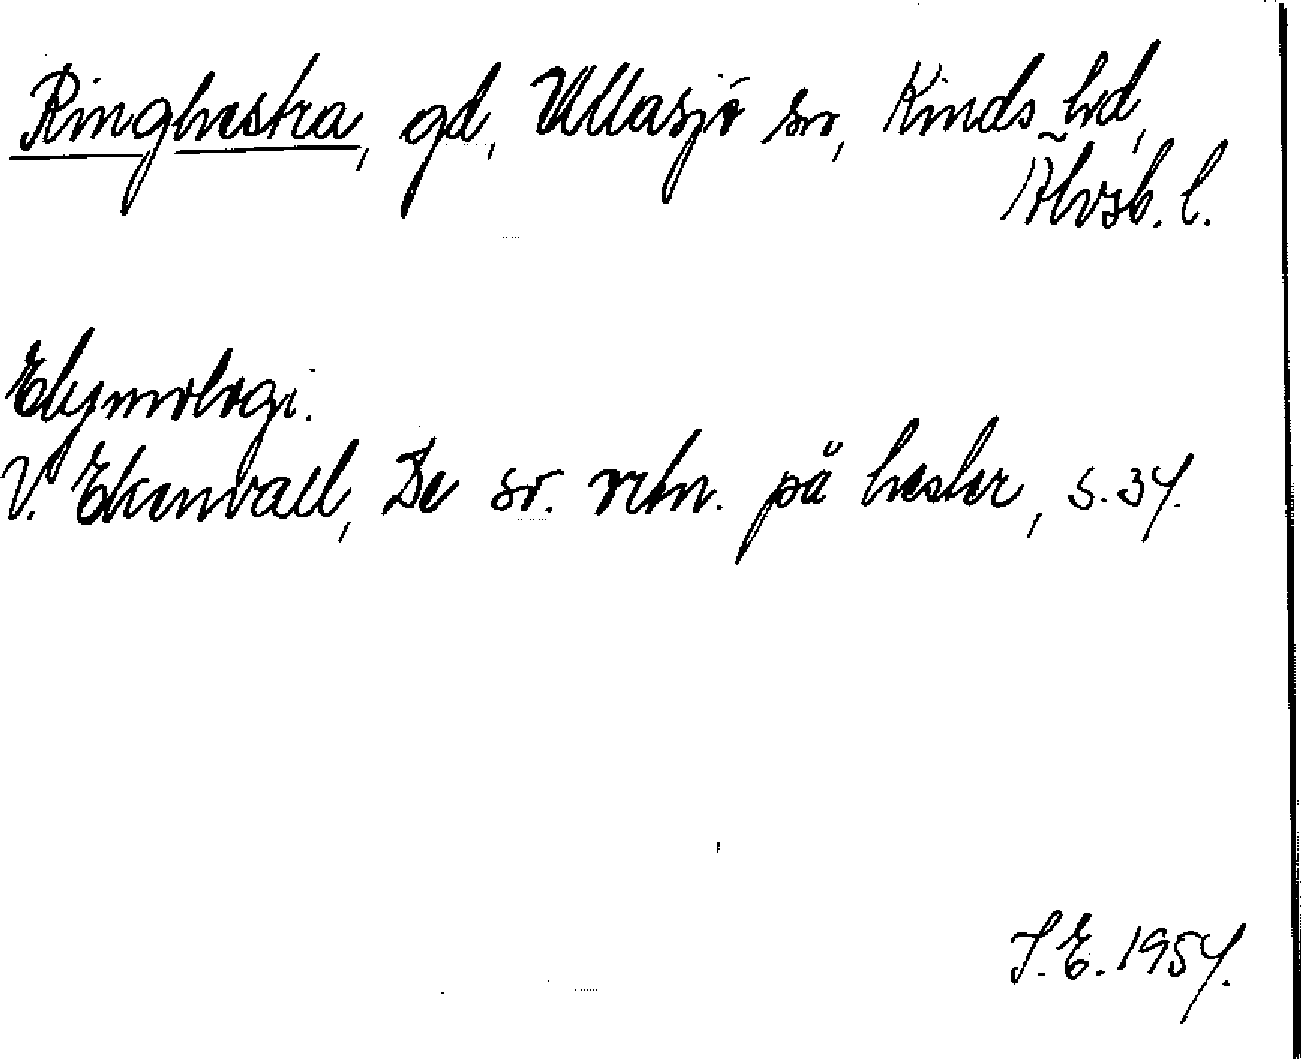 Ringhestra, gd, Ullasjö sn, Kinds hd,
Älvsb. l.
Etymologi.
V. Ekenvall, De sv. rtn. på hester, s. 37.
S.E. 1957.